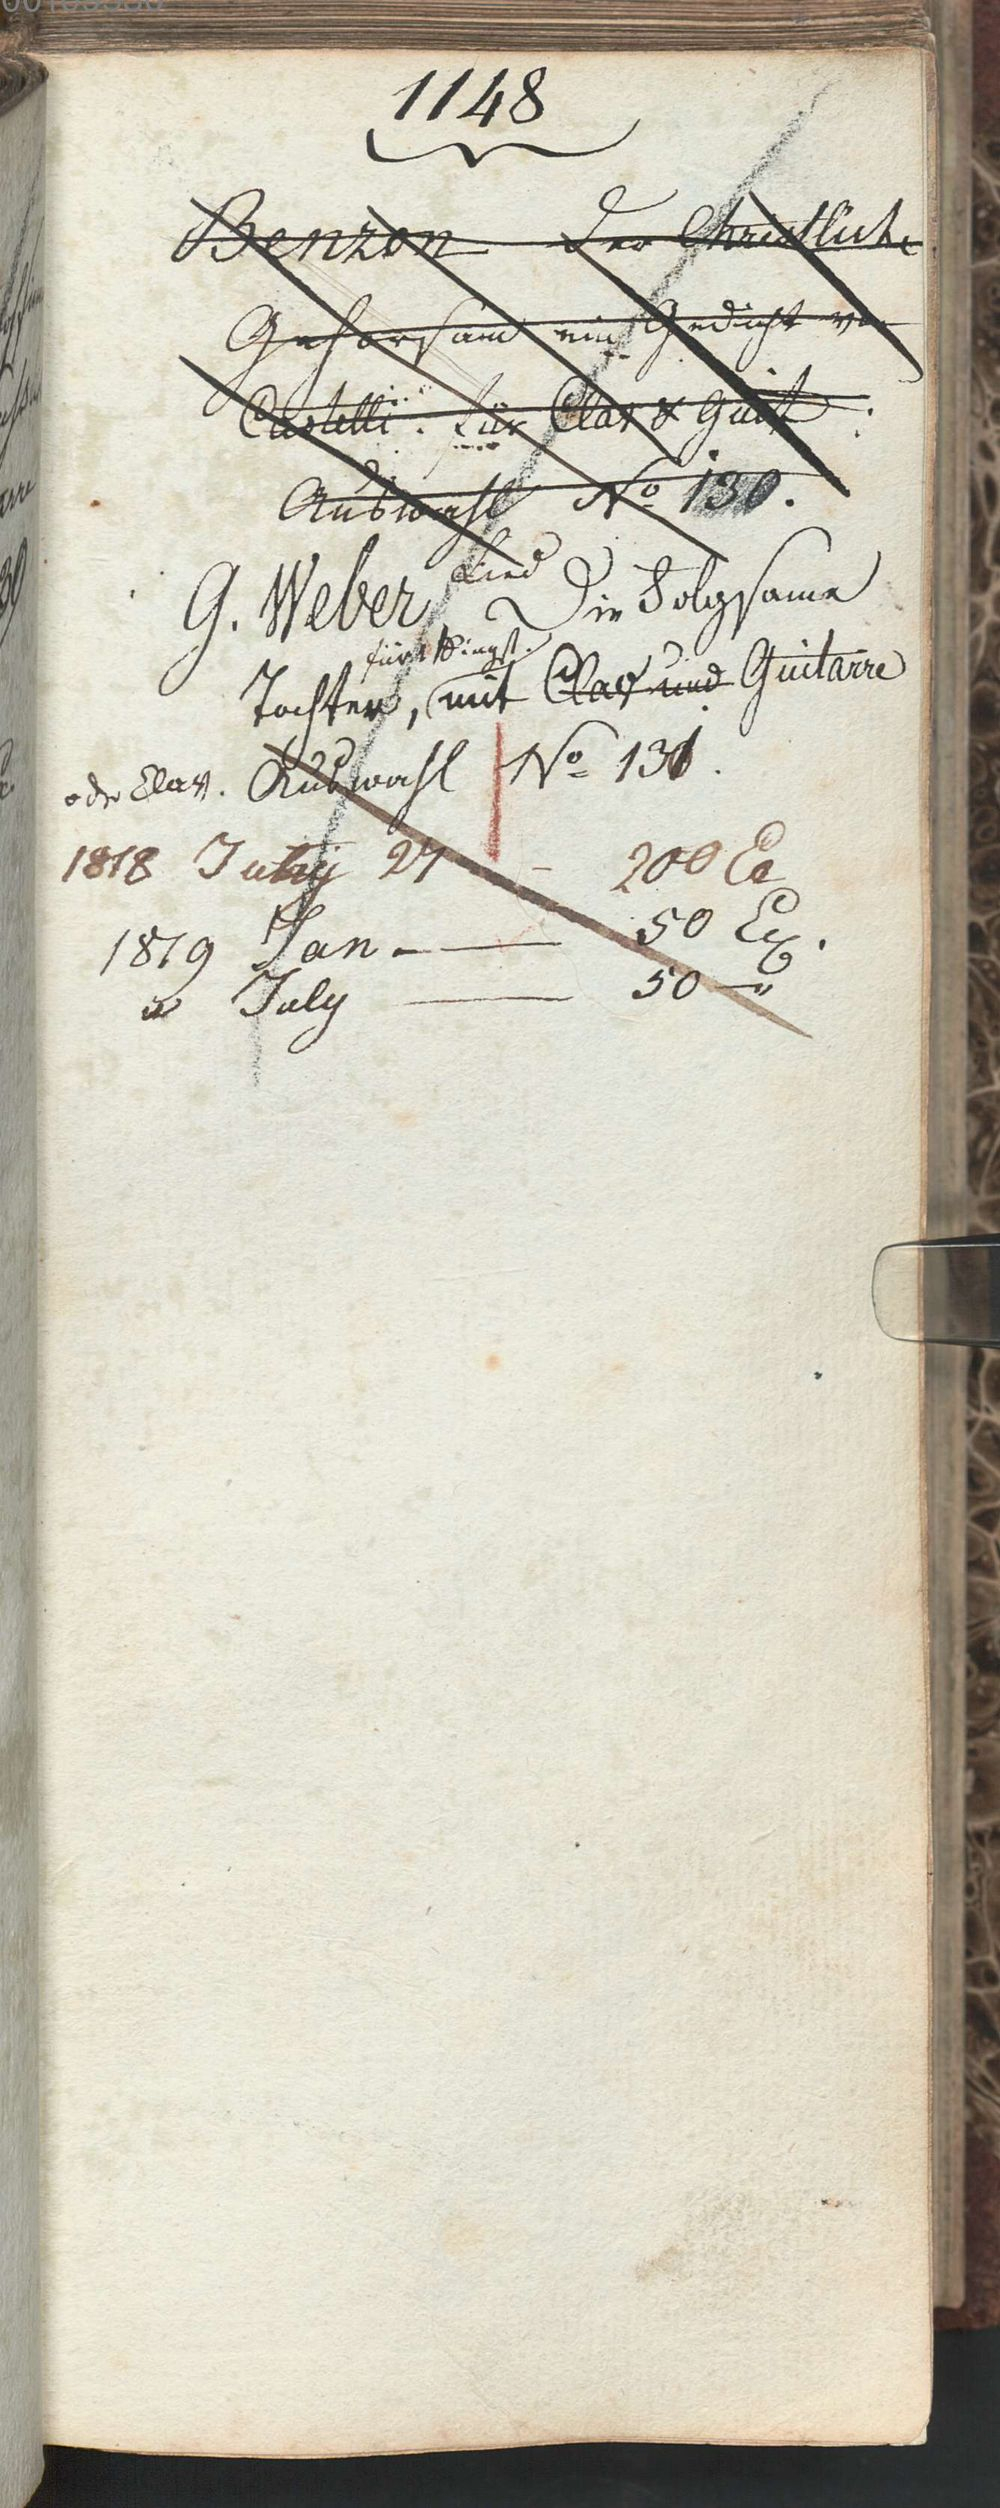 1148
Benzon Der Christliche
Gehorsam ein Gedicht von
Castelli. für Clav & Guit:
Auswahl No 130.
G. Weber Lied Die Folgsame
für 1 Singst.
Tochter, mit Clav und Guitarre
oder Clav. Auswahl No 131.
1818 July 27 – 200 Ex
1819 Jan – 50 Ex.
" July — 50 — "